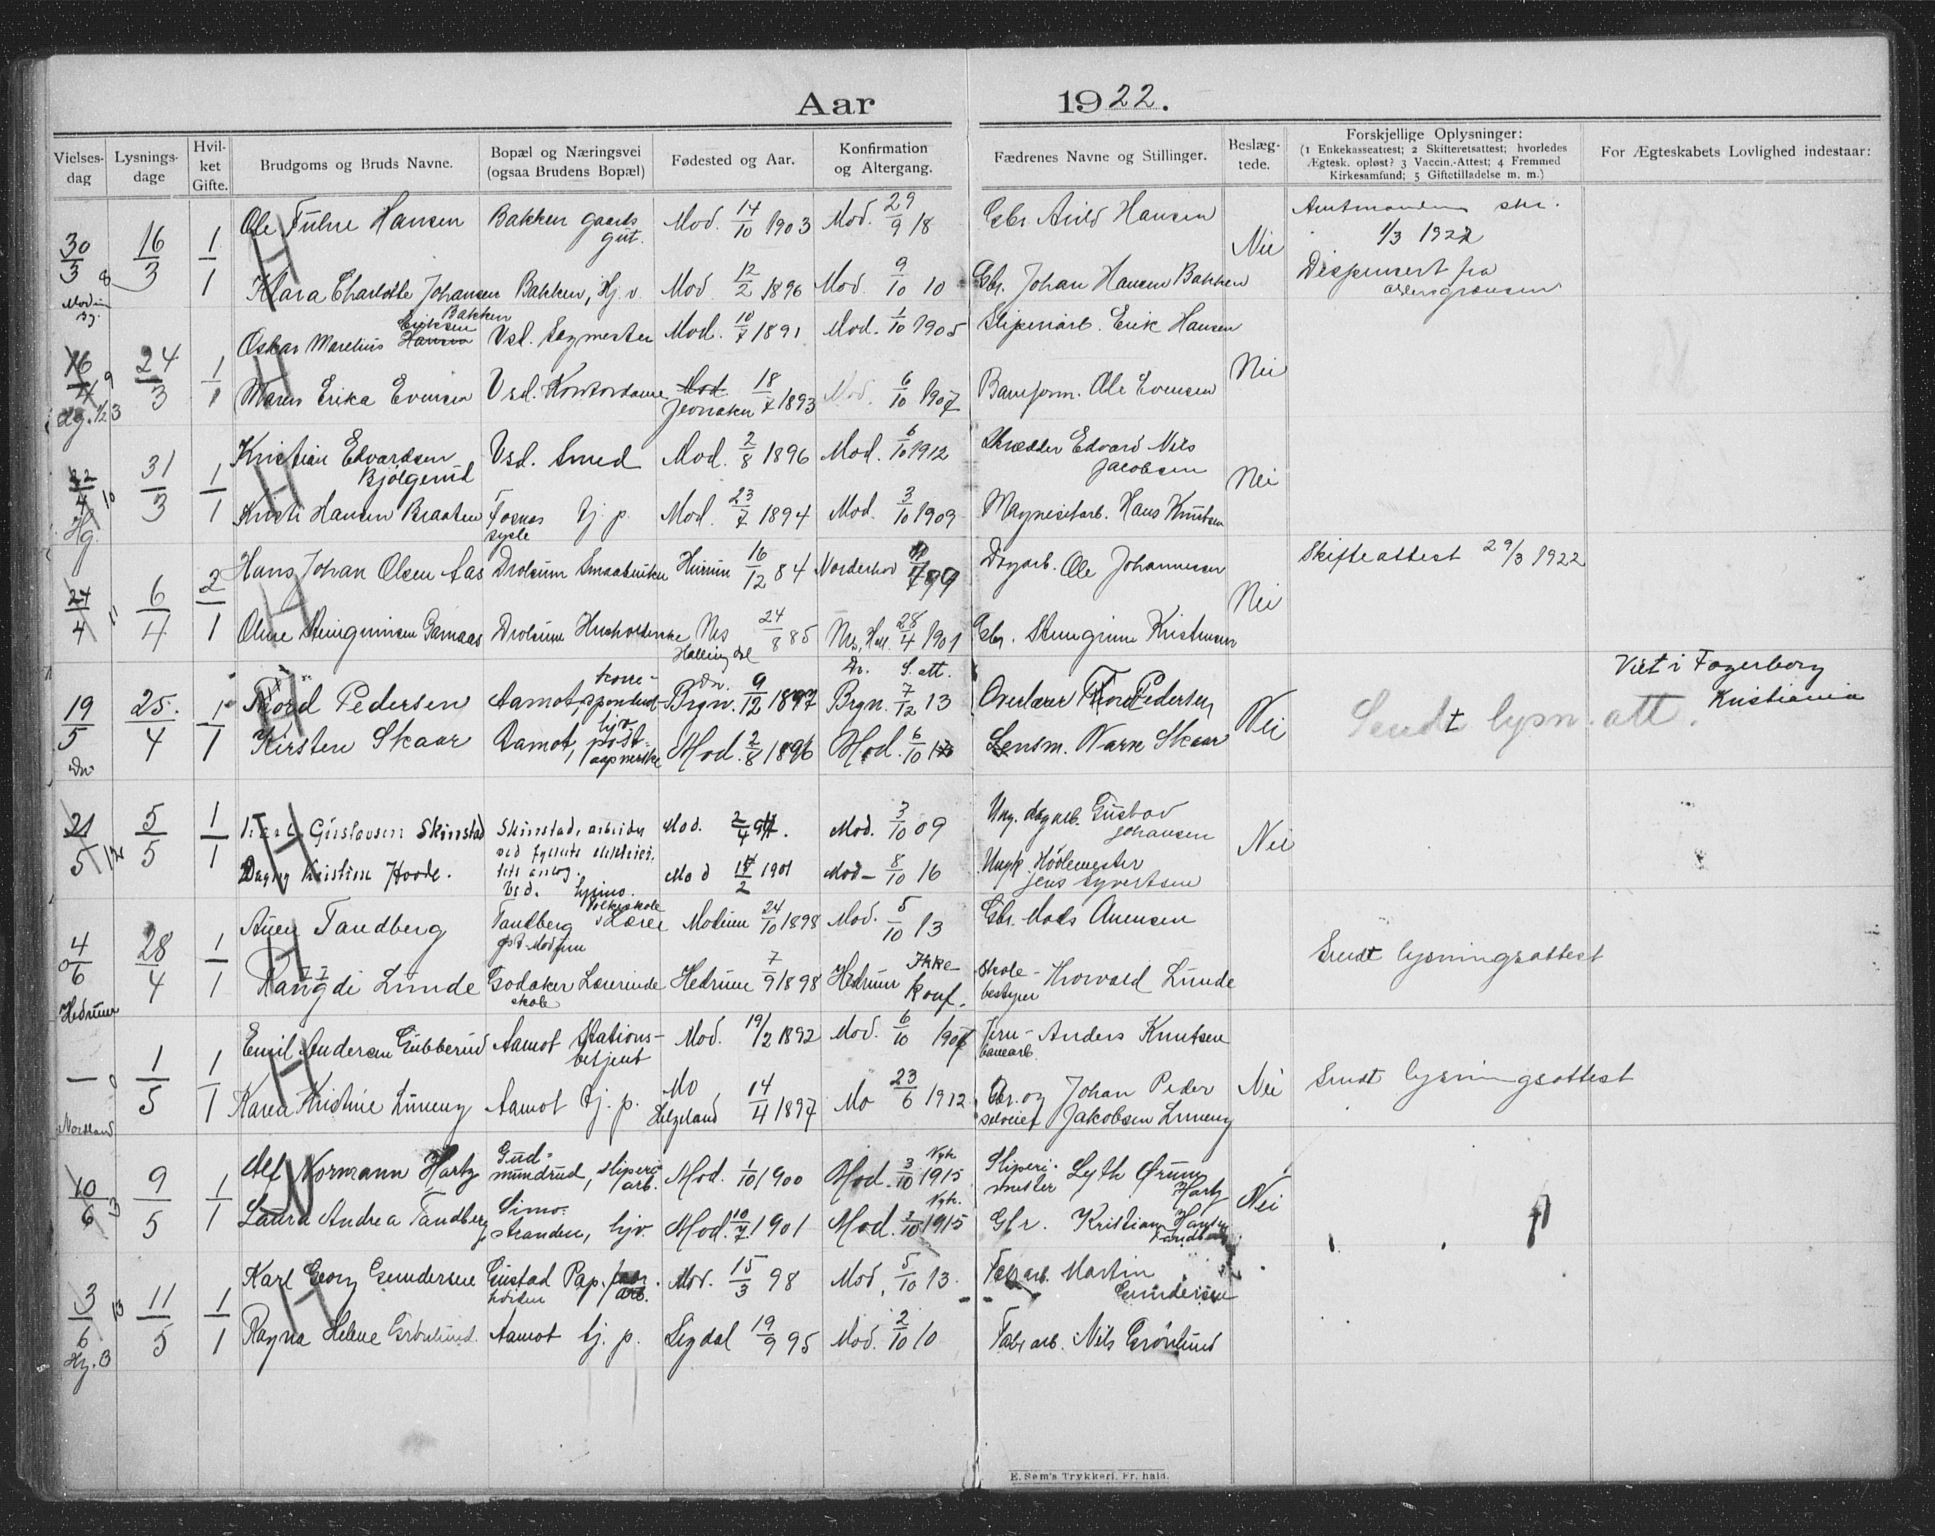 Aar 1922.
Vielses-dag
Lysnings-dage
Hvil-ket Gifte.
Brudgoms og Bruds Navne.
Bopæl og Næringsvei (ogsaa Brudens Bopæl)
Fødested og Aar.
Konfirmation og Altergang.
Fædrenes Navne og Stillinger.
Beslæg-tede.
Forskjellige Oplysninger:
(1 Enkekasseattest; 2 Skifteretsattest; hvorledes Ægtesk. opløst? 3 Vaccin.-Attest; 4 Fremmed Kirkesamfund; 5 Giftetilladelse m. m.)
For Ægteskabets Lovlighed indestaar:
30/3 16/3 1/1
Ole Hansen Bakken gaards gut. Mod. 14/10 1903 Mod. 29/9 18 Gbr Hansen Nei 1/3 1922
Klara Charlotte Johansen Bakken Bakken, Hj. v. Mod 12/2 1896 Mod. 9/10 10 Gbr. Johan Hansen Bakken Dispensert fra
16/4 24/3 1/1
Oskar Marelius Hansen Eriksen Vsd. Sagmester Mod. 10/7 1891 Mod. 1/10 1905 Sliperiarb. Erik Hansen Nei
Maren Erika Evensen Vsd. Kontordame Mod Jevnaker 18/7 1893 Mod. 6/10 1907 Baneform. Ole Evensen
31/3 1/1
Kristian Edvardsen Bjølgerud Vsd. Smed Mod. 2/8 1896 Mod. 6/10 1912 Skrædder Edvard Nils Jacobsen Nei
Hansen Braaten Fosnes sysle tj. p. Mod. 23/7 1894 Mod. 3/10 1909 Magnesitarb. Hans Knutsen
24/4 6/4 2/1
Hans Johan Olsen Aas Drolsum Smaabruker Hurum 16/12 84 Norderhov 99 Dagarb. Ole Johannesen Nei Skifteattest 29/3 1922
Drolsum Husholderske Nes Hallingdal 24/8 85 Nes, Hall. 28/4 1901 Gbr. Kristensen
19/5 25./4 1/1
Tord Pedersen Aamot, korre-spondent Dr. Bragn. 9/12 1897 Dr. S. att. Bragn. 7/12 13 Overlærer Tord Pedersen Nei Sendt lysn. att. Viet i Fagerborg Kristiania
Kirsten Skaar Aamot, hjv. post-aapnerske Mod. 2/8 1896 Mod. 6/10 Lensm. Skaar
21/5 12 5/5 1/1
Gustavsen Skinstad Skinstad, arbeider ved Mod. 2/4 Mod. 3/10 09 Ung. dagarb. Gustav Johansen Nei
Dagny Kristine Hovde. Vsd. hjemv. Mod 1901 Mod- 8/10 16 Høvlemester Jens Syvertsen
4/6 Hedrum 28/4 1/1
Auen Tandberg Tandberg Folkeskole Lærer Modum 24/10 1898 Mod. 5/10 13 Gbr. Mads Auensen Sendt lysningsattest
Ragndi Lunde Godaker Lærerinde skole Hedrum 7/9 1898 Hedrum Ikke konf. Skole-bestyrer Thorvald Lunde
— Nordland 1/5 1/1
Emil Andersen Gubberud Aamot Stations-betjent Mod. 19/2 1892 Mod. 6/10 Jern-banearb. Anders Knutsen Nei Sendt lysningsattest
Karen Kristine Aamot tj. p. Mo Helgeland 14/4 1897 Mo 23/6 1912 Gbr. og Johan Peder Jakobsen
10/6 13 9/5 1/1
Alf Normann Hartz Gud-mundrud, sliperi-arb. Mod. 1/10 1900 Mod. 3/10 1915 Sliperi-mester Lyth Ørum Hartz Nei
Laura Andrea Tandberg Simo-stranden, hjv. Mod. 10/7 1901 Mod. 3/10 1915 Gbr. Kristian Hansen Tandberg
3/6 13 11/5 1/1
Karl Georg Gundersen Pap. fabr. arb. Mod. 15/3 98 Mod, 5/10 13. Fabr. arb. Martin Gundersen
Ragna Helene Grønlund. Aamot tj. p. Sigdal 19/9 95 Mod. 2/10 10 Fabr arb. Nils Grønlund
E. Sem's Trykkeri, Fr. hald.